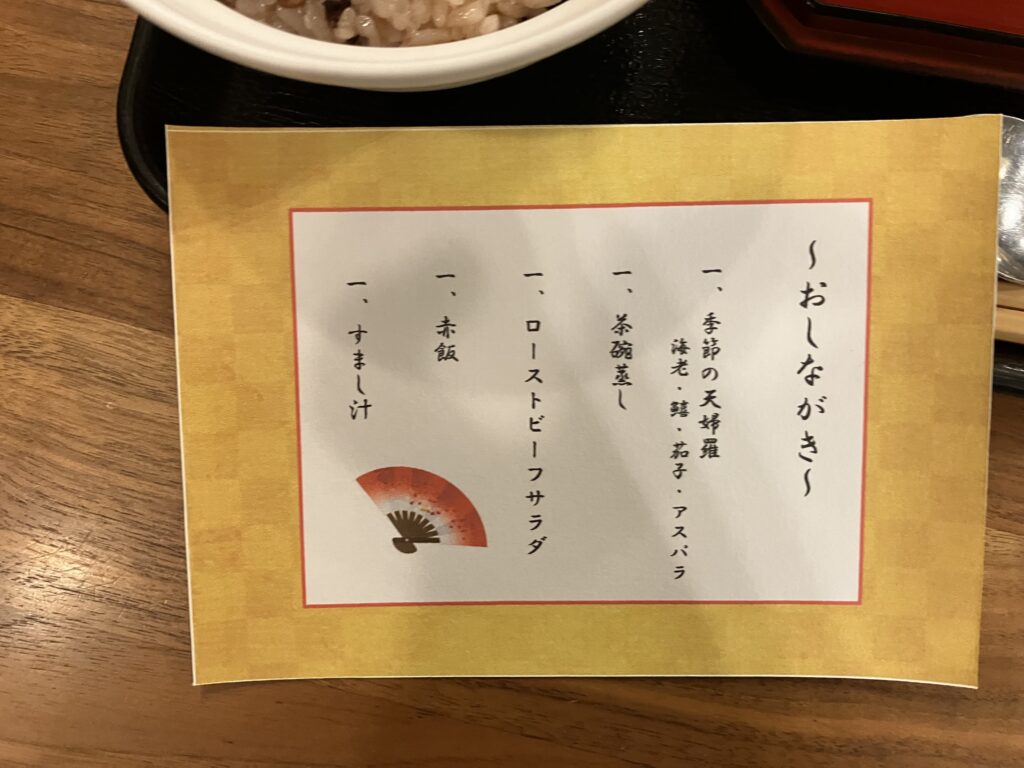 ~おしながき~
一、季節の天婦羅
海老・鱚・茄子・アスパラ
一、茶碗蒸し
一、ローストビーフサラダ
一、赤飯
一、すまし汁